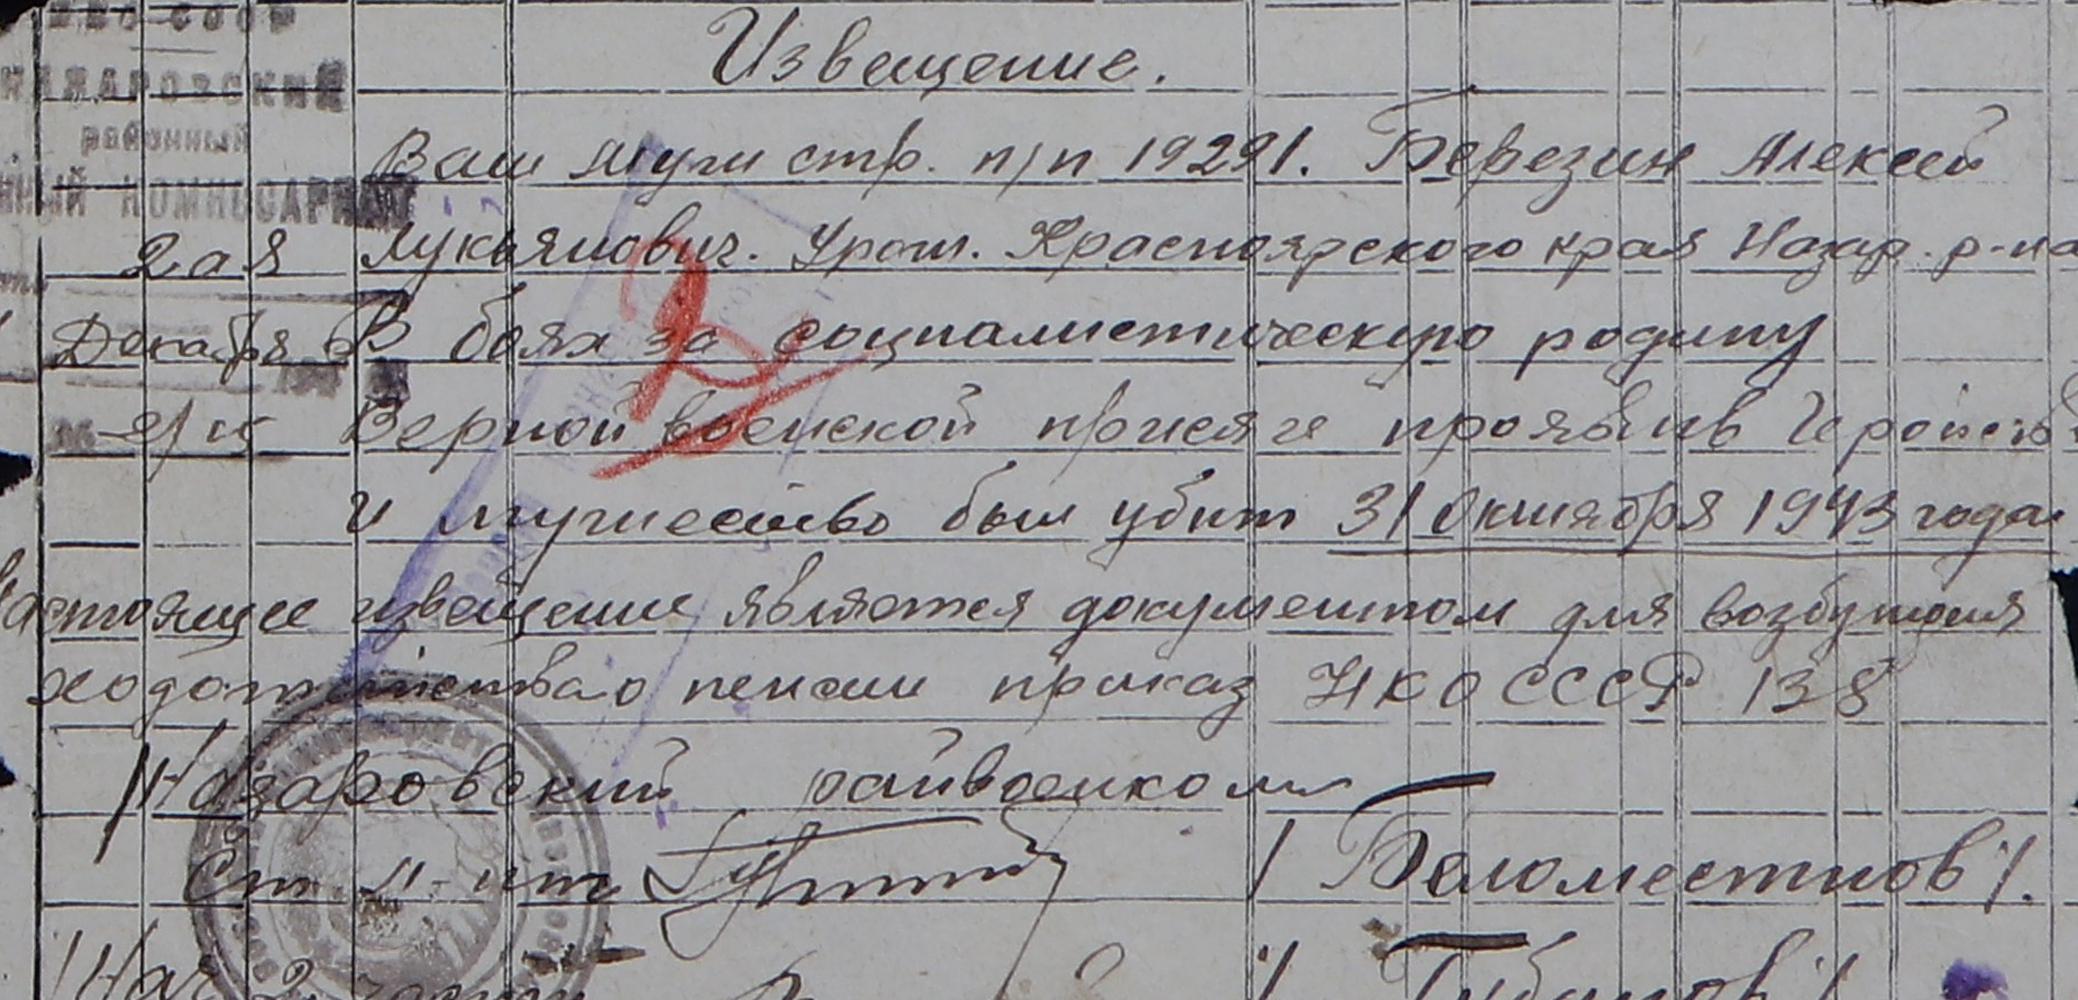 НКО СССР
НАЗАРОВСКИЙ
районный
ВОЕННЫЙ КОМИССАРИАТ
2ая
Декабря
Извещение.
Ваш муж стр. п/п 19291. Березин Алексей
Лукьянович. Урож. Красноярского края Назар. р-на
В боях за социалистическую родину
Верной воинской присяге проявив Геройство
и мужество был убит 31 Октября 1943 года
Настоящее извещение является документом для возбуждения
ходатайства о пенсии приказ НКО СССР 138
/Назаровский райвоенком
Ст. л-нт /Беломестнов/.
/Нач 2 части /Губанов/